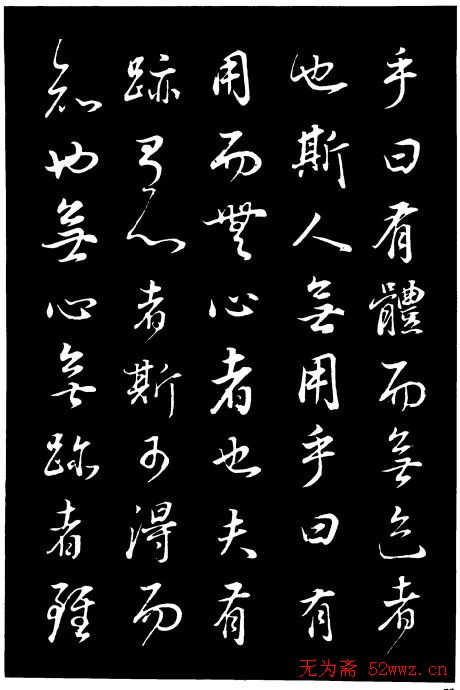 乎曰有體而無色者
也斯人無用乎曰有
用而無心者也夫有
跡有心者斯可得而
知也無心無跡者雖
无为斋 52wwz.cn